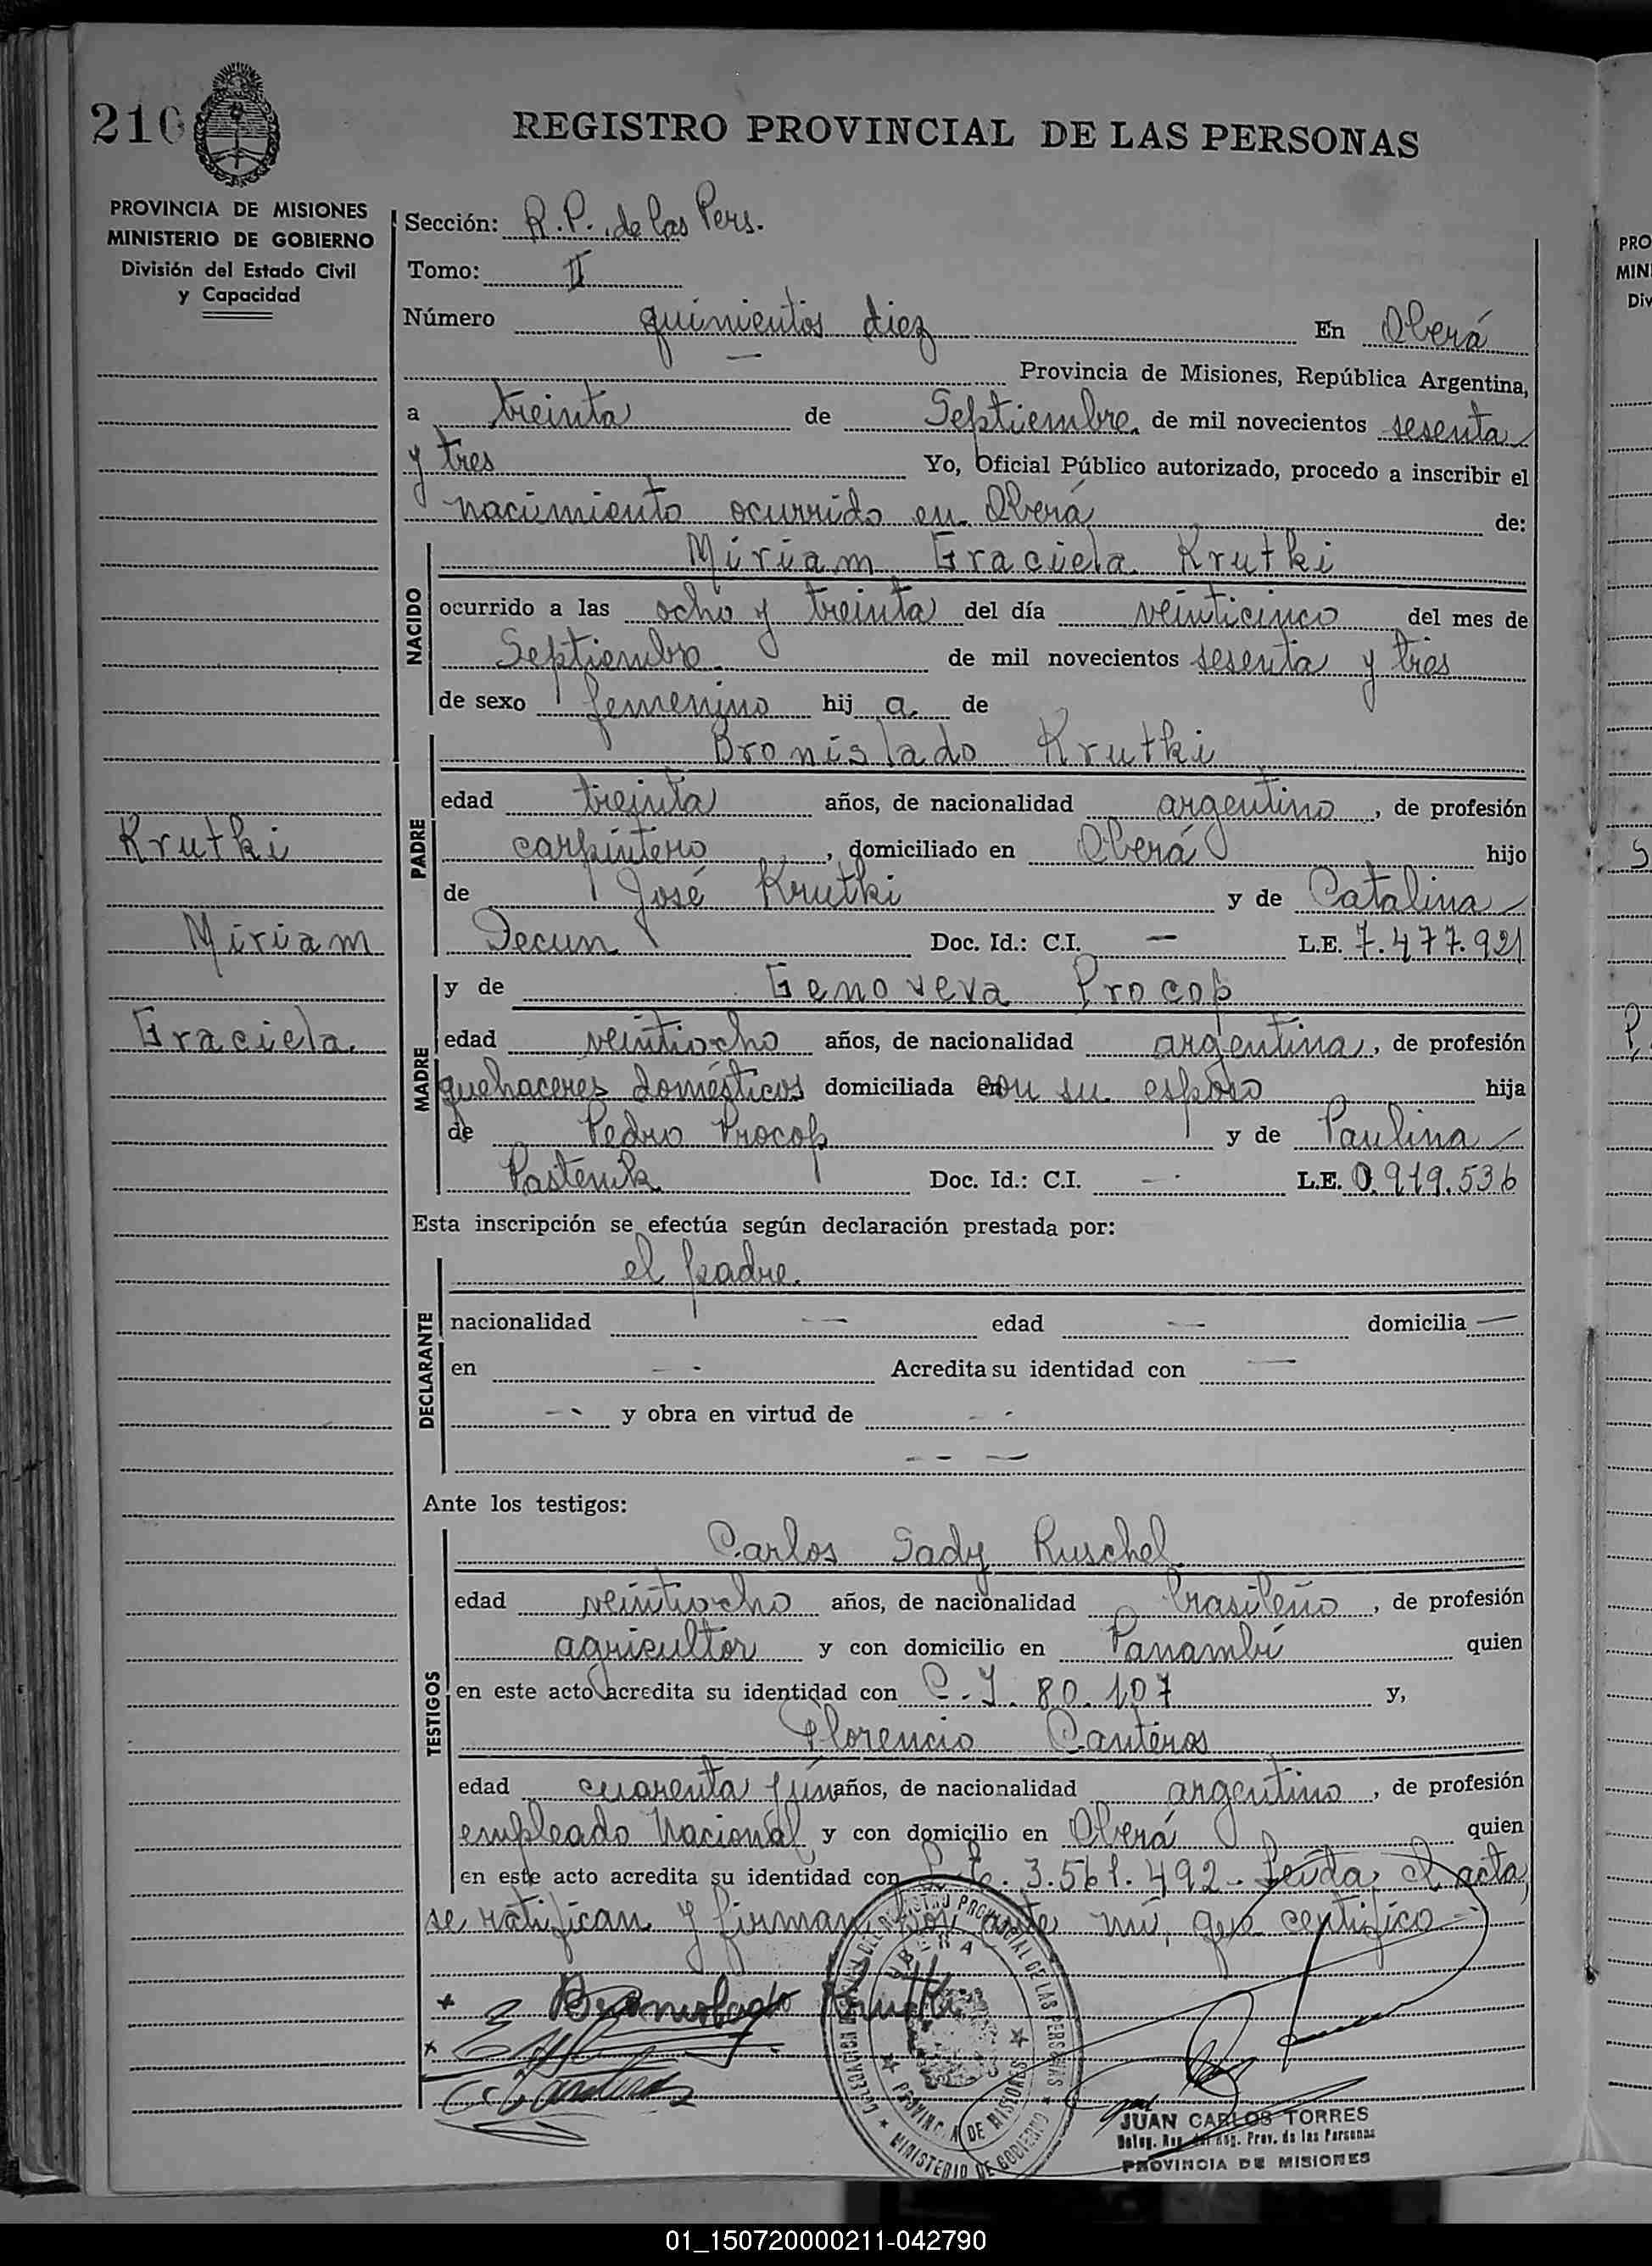 210
REGISTRO PROVINCIAL DE LAS PERSONAS
PROVINCIA DE MISIONES
MINISTERIO DE GOBIERNO
División del Estado Civil
y Capacidad
Sección: R.P. de las Pers.
Tomo: II
Número quinientos diez En Oberá
Provincia de Misiones, República Argentina,
a treinta de Septiembre de mil novecientos sesenta
y tres Yo, Oficial Público autorizado, procedo a inscribir el
nacimiento ocurrido en Oberá de:
NACIDO
Miriam Graciela Krutki
ocurrido a las ocho y treinta del día veinticinco del mes de
Septiembre de mil novecientos sesenta y tres
de sexo femenino hija de
PADRE
Bronislado Krutki
edad treinta años, de nacionalidad argentino, de profesión
carpintero, domiciliado en Oberá hijo
de José Krutki y de Catalina
Decun Doc. Id.: C.I. — L.E. 7.477.921
Krutki
Miriam
Graciela
MADRE
y de Genoveva Procop
edad veintiocho años, de nacionalidad argentina, de profesión
quehaceres domésticos domiciliada con su esposo hija
de Pedro Procop y de Paulina
Pasteruk Doc. Id.: C.I. — L.E. 0.919.536
Esta inscripción se efectúa según declaración prestada por:
DECLARANTE
el padre.
nacionalidad — edad — domicilia —
en — Acredita su identidad con —
— y obra en virtud de —
Ante los testigos:
TESTIGOS
Carlos Sady Ruschel
edad veintiocho años, de nacionalidad brasileño, de profesión
agricultor y con domicilio en Panambí quien
en este acto acredita su identidad con C.I. 80.107 y,
Florencio Canteros
edad cuarenta y un años, de nacionalidad argentino, de profesión
empleado Nacional y con domicilio en Oberá quien
en este acto acredita su identidad con L.E. 3.561.492 - Leída el acta,
se ratifican y firman por ante mí, que certifico -
Bronislado Krutki
DELEGACION DEL REGISTRO PROVINCIAL DE LAS PERSONAS
OBERA
PROVINCIA DE MISIONES
MINISTERIO DE GOBIERNO
JUAN CARLOS TORRES
Prov. de las Personas
PROVINCIA DE MISIONES
01_150720000211-042790